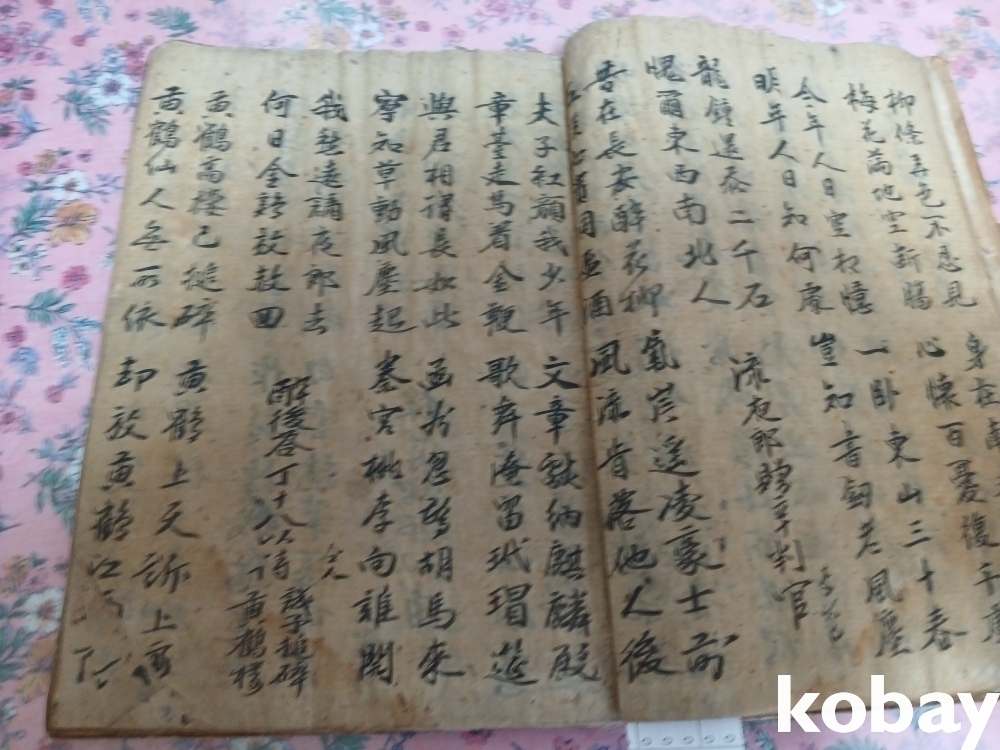 柳條弄色不忍見 身在 復千
梅花滿地空斷腸 心懷百憂
今年人日空相憶 一卧東山三十春
明年人日知何處 豈知書劒老風塵
龍鍾還忝二千石
愧爾東西南北人 流夜郎贈辛判官
昔在長安醉花柳 氣岸遙凌豪士前
同盃酒 風流肯落他人後
夫子紅顔我少年 文章獻納麒麟殿
章臺走馬着金鞭 歌舞淹留玳瑁筵
與君相謂長如此 函谷忽驚胡馬來
寧知草動風塵起 秦宮桃李向誰開
我愁遠謫夜郎去 仝人
何日金鷄放赦回 醉後答丁十八以詩譏予搥碎黃鶴樓
黃鶴高樓已搥碎 黃鶴上天訴上帝
黃鶴仙人無所依 却放黃鶴江
kobay